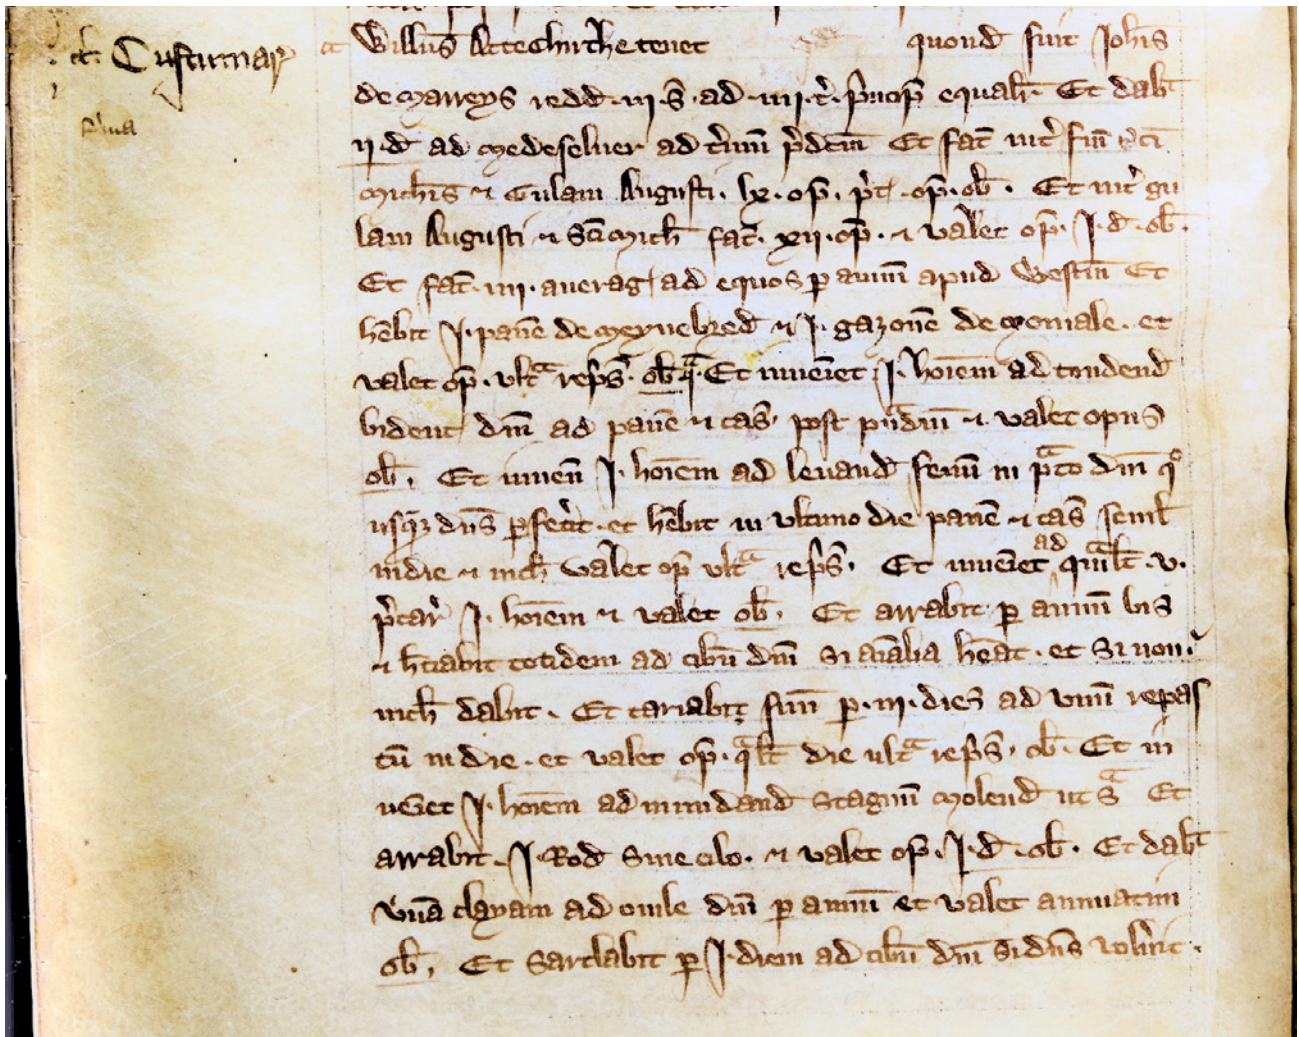 Custumar̄
Willūs Attechirche tenet quond̄ fuit Joh̄is
de Marreys redd̄ .iii. s̄. ad .iiii. t̄. p̄ncip̄ equal̄. Et dab̄t
ii. d̄ ad Medeselver ad t̄minū p̄dc̄m Et fac̄ int̄ fm̄ s̄c̄i
Mich̄is ⁊ Gulam Augusti. lx. op̄. p̄t. op̄. ob̄. Et int̄ gu
lam Augusti ⁊ Sc̄i Mich̄ fac̄. xii. op̄. ⁊ valet op̄. J. d̄. ob̄.
Et fac̄ .iiii. aueraḡ ad equos p̱ annū apud Westm̄ Et
hēbit J. panē de Meynebred̄ ⁊ J. gazonē de Moniale. et
valet op̄. ult̄ᵃ rep̄s̄. ob̄. q̄ᵃ. Et inueniet J. hoīem ad tondend̄
bident̄ dn̄i ad panē ⁊ cas̄. post p̄ndiū ⁊ valet opus
ob̄. Et inuen̄ J. hoīem ad leuand̄ fenū in pᵃto dn̄i qͦ
usqꝫ dn̄s p̱fec̄it. et hēbit in ultimo die panē ⁊ cas̄ semel̄
in die ⁊ nich̄ valet op̄ ult̄ᵃ rep̄s̄. Et inueniet ad quāl̄t .v.
p̄car̄ J. hoīem ⁊ valet ob̄. Et arrabit p̱ annū bis
⁊ h̄ciabit totidem ad cibū dn̄i si aīalia hēat. et si non.
nich̄ dabit. Et cariabit fim̄ p̱ .iii. dies ad unū repas
tū in die. et valet op̄. qᵃl̄t die ult̄ᵃ rep̄s̄. ob̄. Et in
ueīet J. hoīem ad mundand̄ stagnū Molend̄ ut sᵃ Et
arrabit. J. Rod̄ sine cibo. ⁊ valet op̄. J. d̄. ob̄. Et dab̄t
unā clayam ad ouile dn̄i p̱ annū et valet annuatim
ob̄. Et sarclabit p̱ J. diem ad cibū dn̄i si dn̄s volūit.